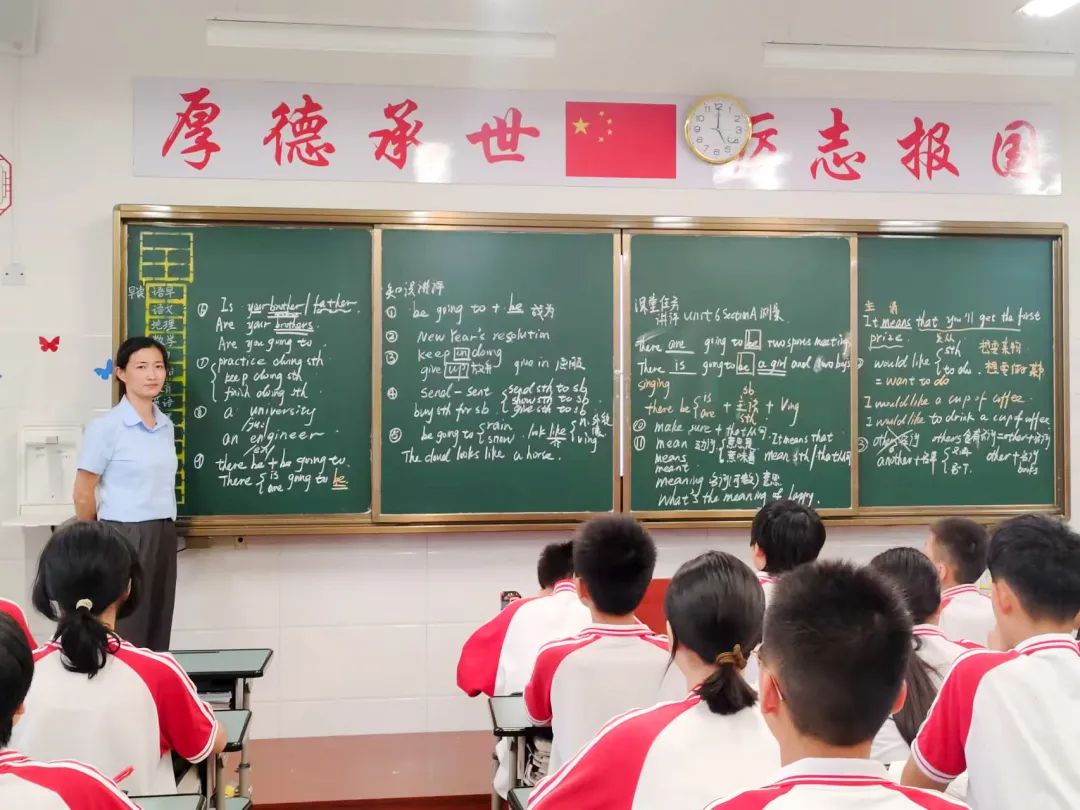 厚德承世 志报国
12
1
2
3
4
5
6
7
8
9
10
11
早读
语早
语文
地理
数学
⑥ Is your brother / father
Are your brothers
Are you going to
⑦ practice doing sth
keep doing sth
finish doing sth
⑧ a university
/ju:/
an engineer
/e/
⑨ there be + be going to
There { is
are going to be
知识讲评
① be going to + be 成为
② New Year's resolution
③ keep on doing
give up 放弃 give in 屈服
④ send-sent send sth to sb
show sth to sb
buy sth for sb give sth to sb
⑤ be going to { rain
snow look like { n.
ving
The cloud looks like a horse.
课堂任务
讲评 Unit 6 Section A
There are going to be two sports meeting
There is going to be a girl and two boys
singing
sb
there be { is
are + 主语 + Ving
sth
⑩ make sure + that从句
⑪ mean 动词 { 意思是 It means that
means 意味着 mean sth/that从句
meant
meaning 名词(可数) 意思
what's the meaning of happy.
主语
It means that you'll get the first
prize.
would like { sth 想要某物
to do 想要做某事
= want to do
I would like a cup of coffee.
I would like to drink a cup of coffee
others others = other+
another+名单 other+
books